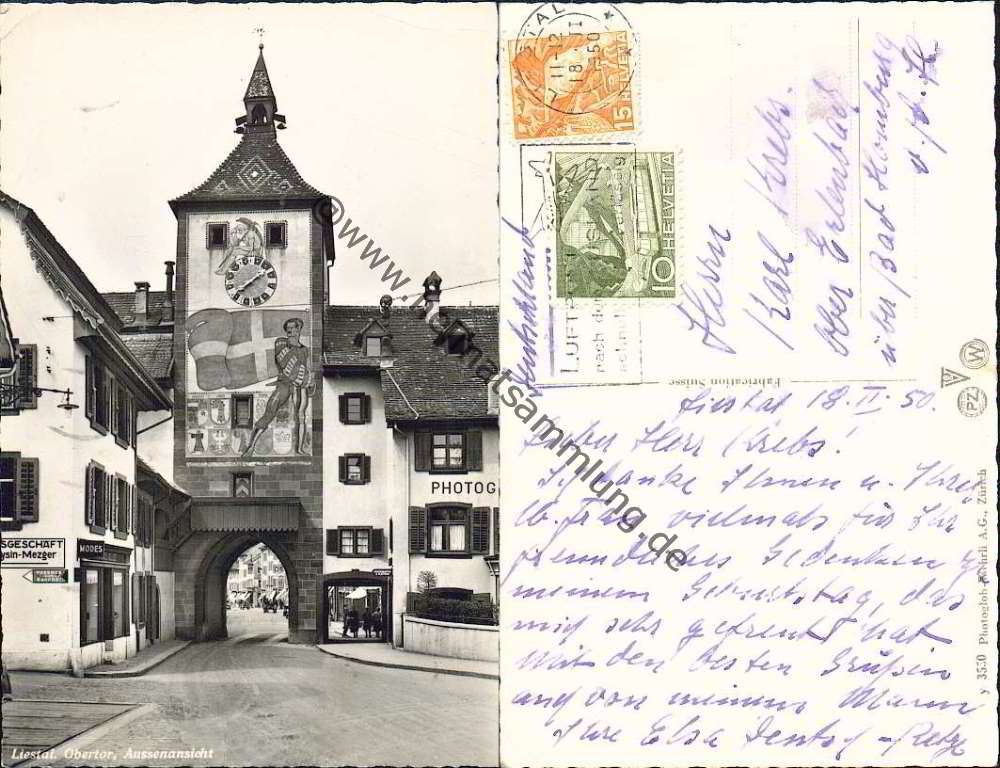 SGESCHÄFT
ysin-Mezger
MODES
PHOTOG
Liestal. Obertor, Aussenansicht
© www.heimatsammlung.de
LIESTAL
11-12
18.II
50
HELVETIA 15
10 HELVETIA
LUFT
nach de
Deutschland
Herrn
Karl Krebs.
Ober Erlenbach
über Bad Homburg
v. d. H.
Fabrication Suisse
PZ
y 3550 Photoglob-Wehrli A.G., Zürich
Liestal 18. II. 50.
Lieber Herr Krebs!
Ich danke Ihnen u. Ihrer
lb. Frau vielmals für Ihr
freundliches Gedenken zu
meinem Geburtstag, das
mich sehr gefreut hat
Mit den besten Grüßen
auch von meinem Mann
Ihre Elsa